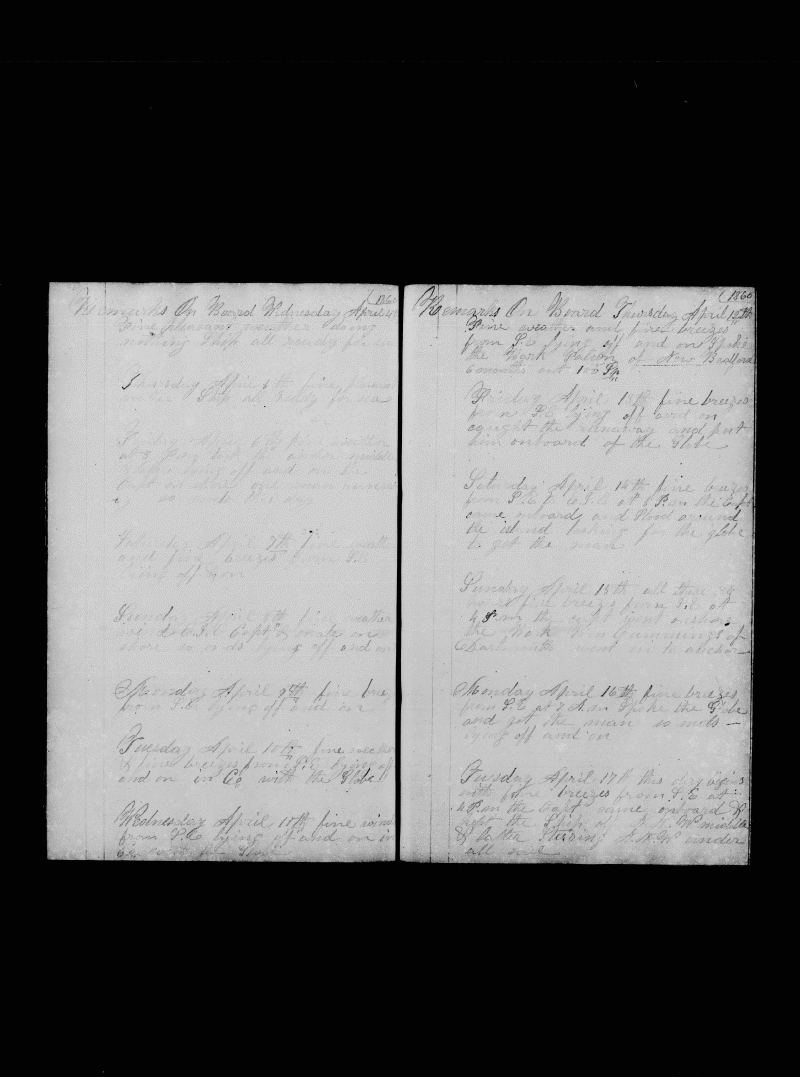 1860
Remarks On Board Wednesday April 4th
Fine pleasant weather
Ship all ready for sea
Thursday April 5th fine pleasant
Ship all ready for sea
Friday April 6th fine weather
at 3
lying off and on
Capt on shore one man
so ends this day
Saturday April 7th fine weather
and fine breezes from S.E
lying off & on
Sunday April 8th fine weather
Capt & mate on
shore so ends lying off and on
Monday April 9th fine
from S.E lying off and on
Tuesday April 10th fine weather
& fine breezes from S.E lying off
and on in Co with the Globe
Wednesday April 11th fine wind
from S.E lying off and on in
1860
Remarks On Board Thursday April 12th
Fine weather and fine breezes
from S.E lying off and on Spoke
the Bark Falcon of New Bedford
6 months out 100 Sp
Friday April 13th fine breezes
from S.E lying off and on
caught the runaway and put
him onboard of the Globe
Saturday April 14th fine breezes
from S.E & E.S.E at 5 P.m the Capt
came onboard and stood around
the island looking for the globe
to get the man
Sunday April 15th all these 24
hours fine breezes from S.E at
4 P.m the capt went onshore
the Bark Wm Cummings of
Dartmouth went in to anchor
Monday April 16th fine breezes
from S.E at 7 A.m Spoke the Globe
and got the man so ends
lying off and on
Tuesday April 17th this day begins
with fine breezes from S.E at
4 P.m the Capt came onboard &
left the
& Steering N.W under
all sail